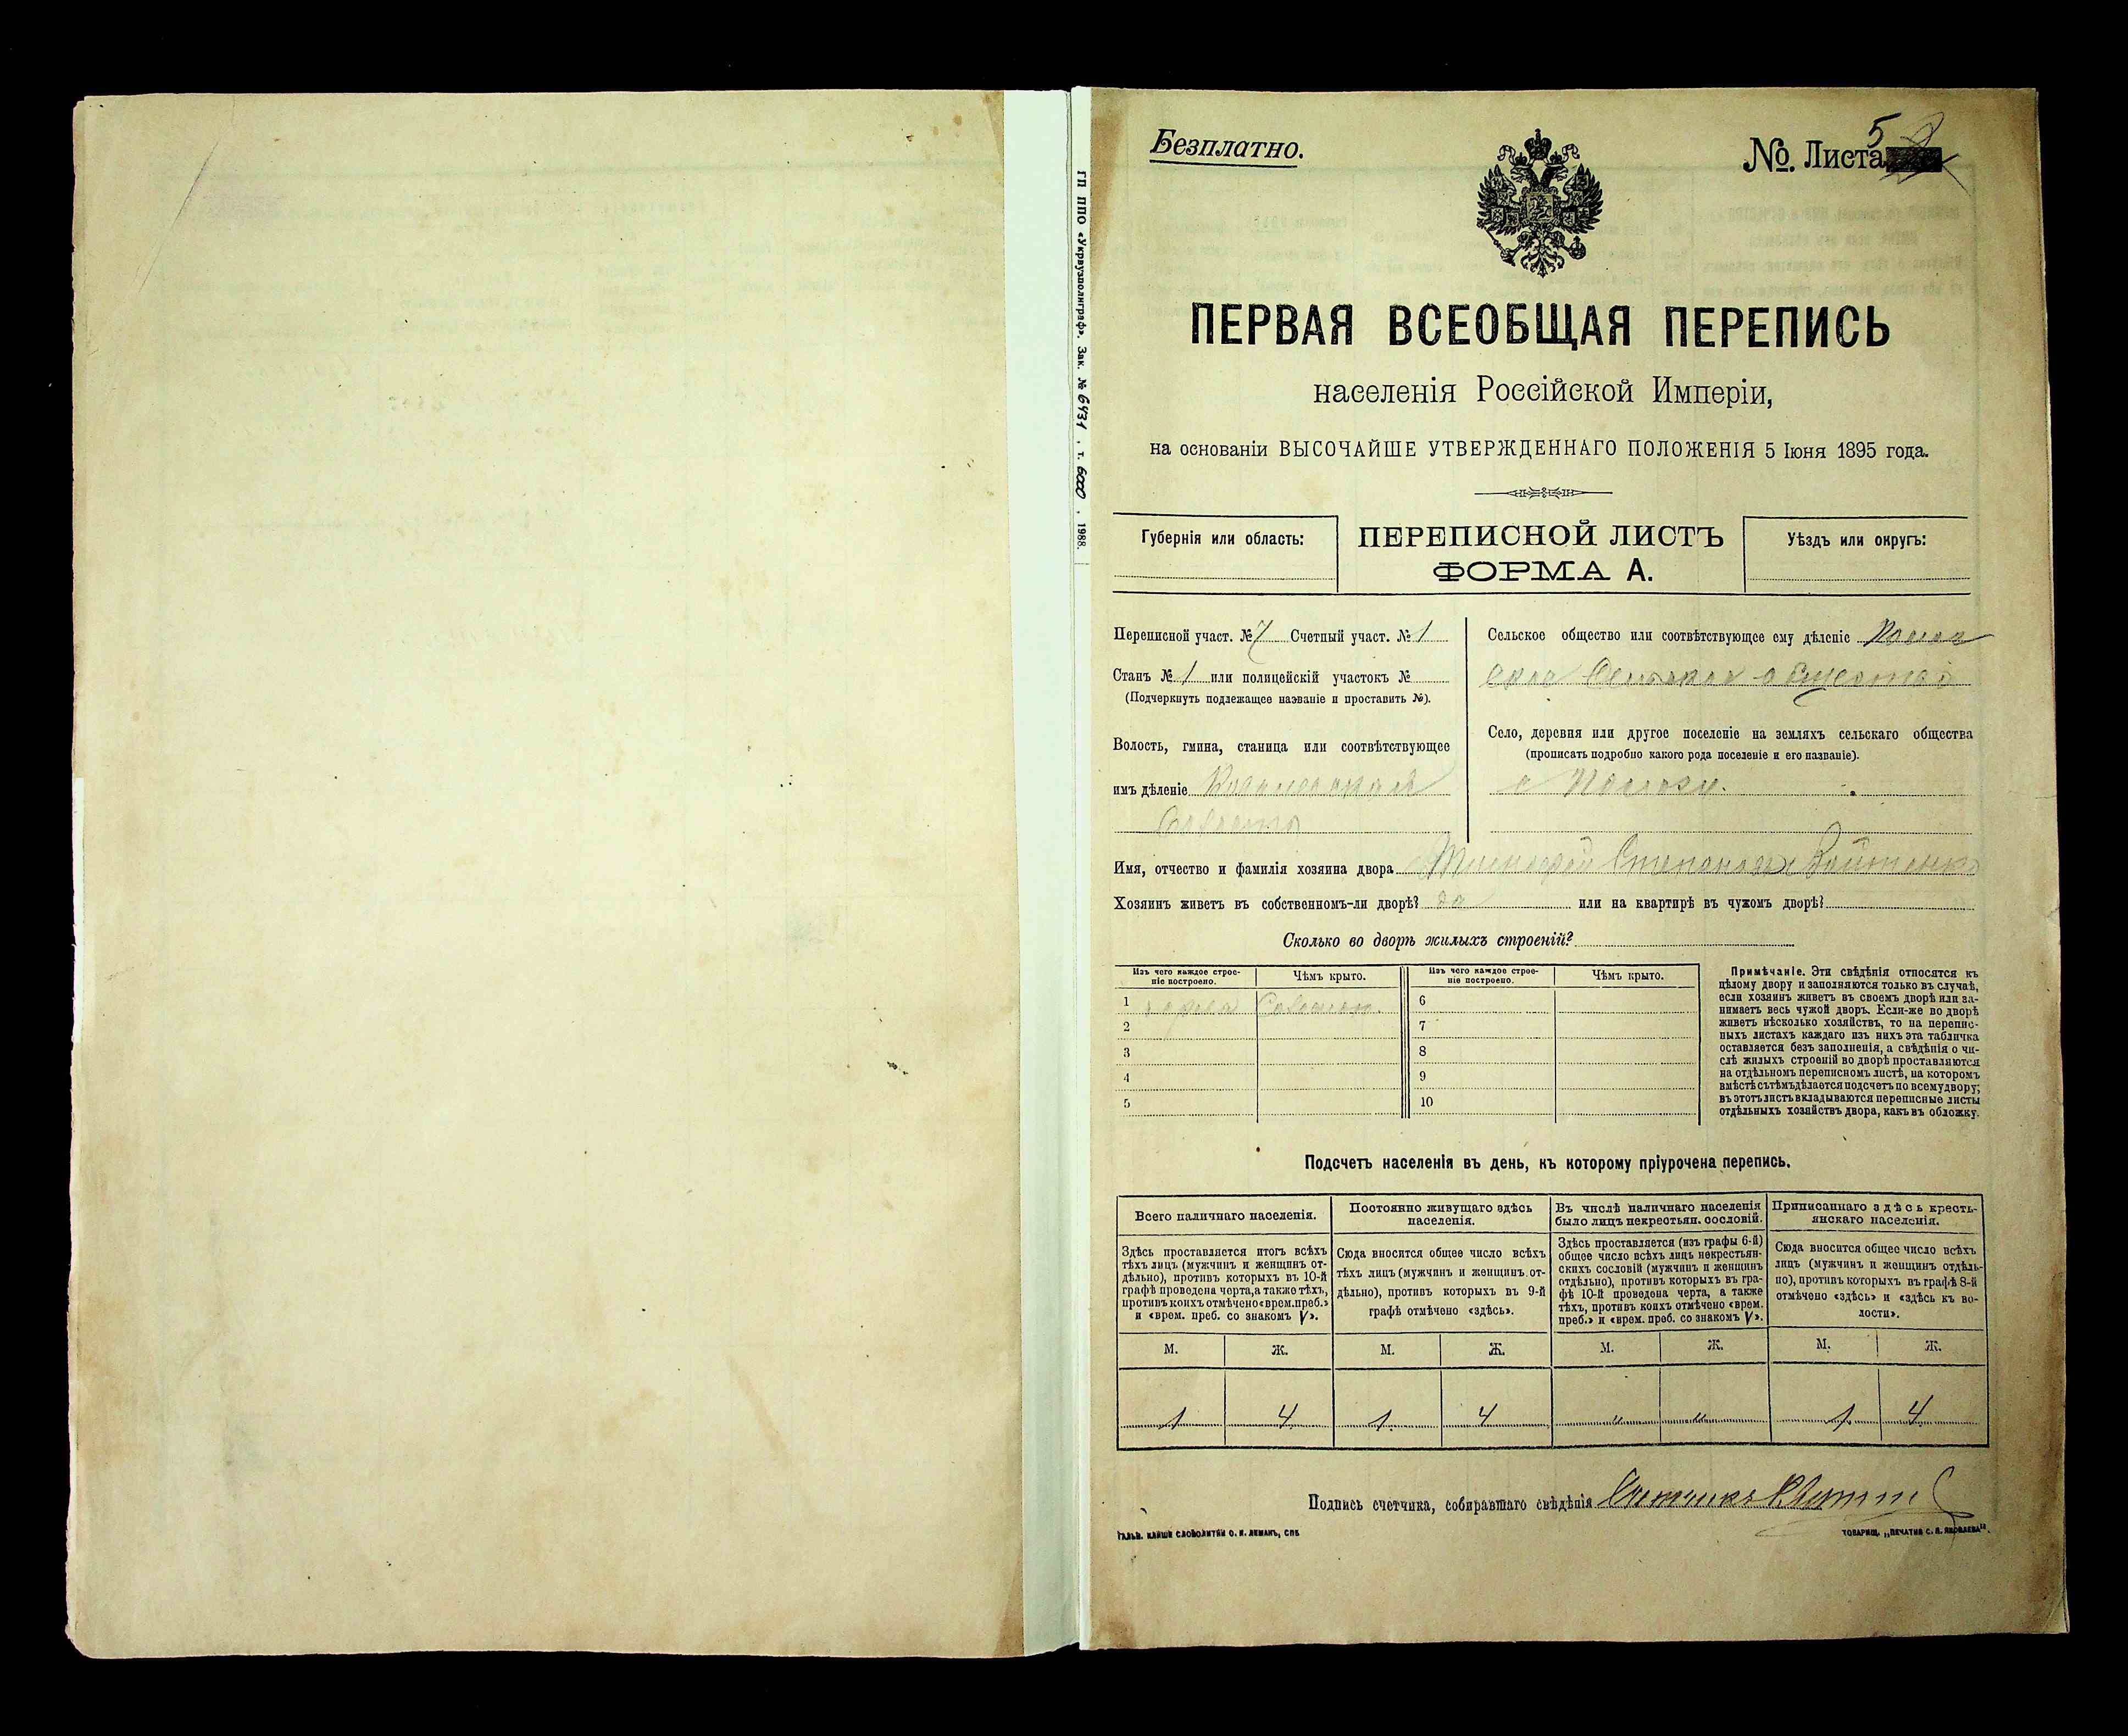 ГП ППО «Укрвузполиграф». Зак. № 6431 . т. 6000 . 1988.
Безплатно.
№. Листа 5
ПЕРВАЯ ВСЕОБЩАЯ ПЕРЕПИСЬ
населенія Россійской Имперіи,
на основаніи ВЫСОЧАЙШЕ УТВЕРЖДЕННАГО ПОЛОЖЕНІЯ 5 Іюня 1895 года.
Губернія или область:
ПЕРЕПИСНОЙ ЛИСТЪ
ФОРМА А.
Уѣздъ или округъ:
Переписной участ. № 7 Счетный участ. № 1
Станъ № 1 или полицейскій участокъ №
(Подчеркнуть подлежащее названіе и проставить №).
Волость, гмина, станица или соотвѣтствующее
имъ дѣленіе
Сельское общество или соотвѣтствующее ему дѣленіе
Село, деревня или другое поселеніе на земляхъ сельскаго общества
(прописать подробно какого рода поселеніе и его названіе).
Имя, отчество и фамилія хозяина двора
Хозяинъ живетъ въ собственномъ-ли дворѣ? да или на квартирѣ въ чужомъ дворѣ?
Сколько во дворѣ жилыхъ строеній?
Изъ чего каждое строе-
ніе построено.
Чѣмъ крыто.
Изъ чего каждое строе-
ніе построено.
Чѣмъ крыто.
1
2
3
4
5
6
7
8
9
10
Примѣчаніе. Эти свѣдѣнія относятся къ
цѣлому двору и заполняются только въ случаѣ,
если хозяинъ живетъ въ своемъ дворѣ или за-
нимаетъ весь чужой дворъ. Если-же во дворѣ
живетъ нѣсколько хозяйствъ, то на перепис-
ныхъ листахъ каждаго изъ нихъ эта табличка
оставляется безъ заполненія, а свѣдѣнія о чи-
слѣ жилыхъ строеній во дворѣ проставляются
на отдѣльномъ переписномъ листѣ, на которомъ
вмѣстѣ съ тѣмъ дѣлается подсчетъ по всему двору;
въ этотъ листъ вкладываются переписные листы
отдѣльныхъ хозяйствъ двора, какъ въ обложку.
Подсчетъ населенія въ день, къ которому пріурочена перепись.
Всего наличнаго населенія.
Постоянно живущаго здѣсь
населенія.
Въ числѣ наличнаго населенія
было лицъ некрестьян. сословій.
Приписаннаго здѣсь кресть-
янскаго населенія.
Здѣсь проставляется итогъ всѣхъ
тѣхъ лицъ (мужчинъ и женщинъ от-
дѣльно), противъ которыхъ въ 10-й
графѣ проведена черта, а также тѣхъ,
противъ коихъ отмѣчено «врем. преб.»
и «врем. преб. со знакомъ V».
Сюда вносится общее число всѣхъ
тѣхъ лицъ (мужчинъ и женщинъ от-
дѣльно), противъ которыхъ въ 9-й
графѣ отмѣчено «здѣсь».
Здѣсь проставляется (изъ графы 6-й)
общее число всѣхъ лицъ некрестьян-
скихъ сословій (мужчинъ и женщинъ
отдѣльно), противъ которыхъ въ гра-
фѣ 10-й проведена черта, а также
тѣхъ, противъ коихъ отмѣчено «врем.
преб.» и «врем. преб. со знакомъ V».
Сюда вносится общее число всѣхъ
лицъ (мужчинъ и женщинъ отдѣль-
но), противъ которыхъ въ графѣ 8-й
отмѣчено «здѣсь» и «здѣсь къ во-
лости».
М. Ж. М. Ж. М. Ж. М. Ж.
1 4 1 4 " " 1 4
Подпись счетчика, собиравшаго свѣдѣнія
ГАЛЬВ. КЛИШЕ СЛОВОЛИТНИ О. И. ЛЕМАНЪ, СПБ.
ТОВАРИЩ. „ПЕЧАТНЯ С. П. ЯКОВЛЕВА".